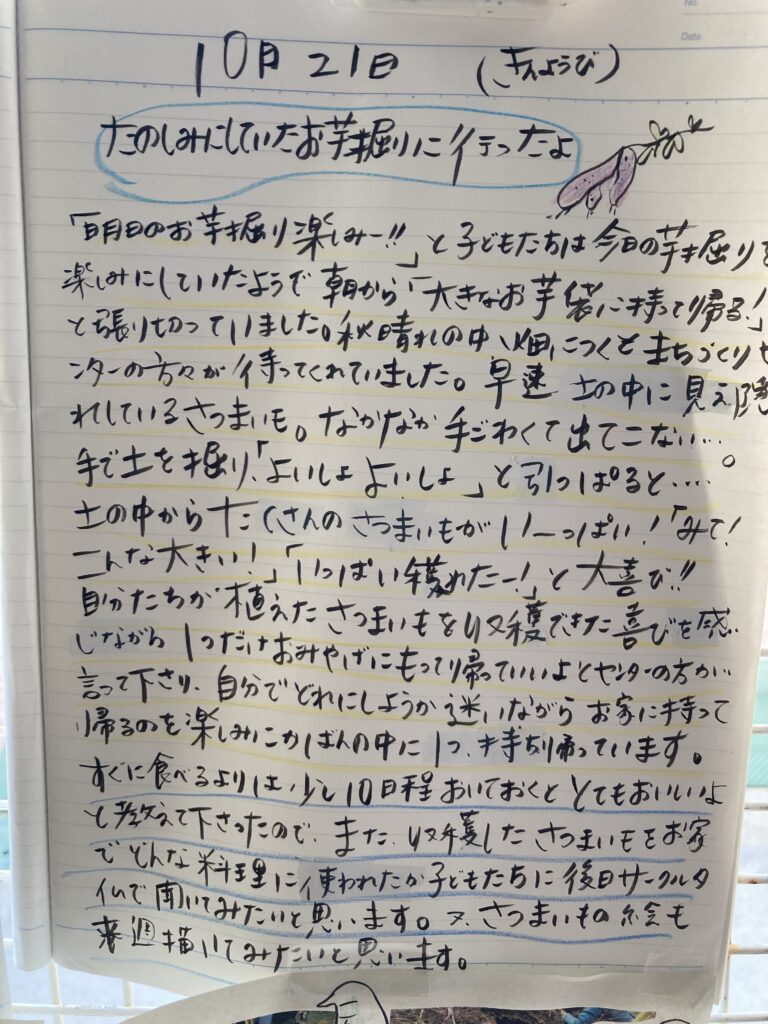 No.
Date
10月21日 (きんようび)
たのしみにしていたお芋掘りに行ったよ
「明日のお芋掘り楽しみー!!」と子どもたちは今日の芋掘りを
楽しみにしていたようで朝から「大きなお芋袋に持って帰る!」
と張り切っていました。秋晴れの中、畑につくとまちづくりセ
ンターの方々が待ってくれていました。早速 土の中に見え隠
れしているさつまいも。なかなか手ごわくて出てこない…。
手で土を掘り、「よいしょ よいしょ」と引っぱると……
土の中からたくさんのさつまいもがいーっぱい!「みて!
こんな大きい!」「いっぱい穫れたー!」と大喜び!!
自分たちが植えたさつまいもを収穫できた喜びを感
じながら 1つだけおみやげにもって帰っていいよとセンターの方が
言って下さり、自分でどれにしようか迷いながら お家に持って
帰るのを楽しみにかばんの中に1つ、持ち帰っています。
すぐに食べるよりは、少し10日程おいておくと とてもおいしいよ
と教えて下さったので、また、収穫したさつまいもをお家
でどんな料理に使われたか子どもたちに後日サークルタ
イムで聞いてみたいと思います。又、さつまいもの絵も
来週描いてみたいと思います。